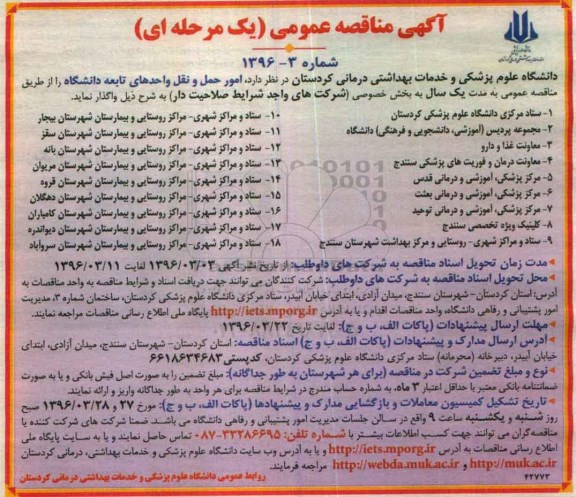 آگهی مناقصه عمومی (یک مرحله ای)
شماره ۳- ۱۳۹۶
دانشگاه علوم پزشکی و خدمات بهداشتی درمانی کردستان در نظر دارد، امور حمل و نقل واحدهای تابعه دانشگاه را از طریق
مناقصه عمومی به مدت یک سال به بخش خصوصی (شرکت های واجد شرایط صلاحیت دار) به شرح ذیل واگذار نماید.
۱- ستاد مرکزی دانشگاه علوم پزشکی کردستان
۲- مجموعه پردیس (آموزشی، دانشجویی و فرهنگی) دانشگاه
۳- معاونت غذا و دارو
۴- معاونت درمان و فوریت های پزشکی سنندج
۵- مرکز پزشکی، آموزشی و درمانی قدس
۶- مرکز پزشکی، آموزشی و درمانی بعثت
۷- مرکز پزشکی، آموزشی و درمانی توحید
۸- کلینیک ویژه تخصصی سنندج
۹- ستاد و مراکز شهری- روستایی و مرکز بهداشت شهرستان سنندج
۱۰- ستاد و مراکز شهری- مراکز روستایی و بیمارستان شهرستان بیجار
۱۱- ستاد و مراکز شهری- مراکز روستایی و بیمارستان شهرستان سقز
۱۲- ستاد و مراکز شهری- مراکز روستایی و بیمارستان شهرستان بانه
۱۳- ستاد و مراکز شهری- مراکز روستایی و بیمارستان شهرستان مریوان
۱۴- ستاد و مراکز شهری- مراکز روستایی و بیمارستان شهرستان قروه
۱۵- ستاد و مراکز شهری- مراکز روستایی و بیمارستان شهرستان دهگلان
۱۶- ستاد و مراکز شهری- مراکز روستایی و بیمارستان شهرستان کامیاران
۱۷- ستاد و مراکز شهری- مراکز روستایی و بیمارستان شهرستان دیواندره
۱۸- ستاد و مراکز شهری- مراکز روستایی و بیمارستان شهرستان سروآباد
مدت زمان تحویل اسناد مناقصه به شرکت های داوطلب: از تاریخ نشر آگهی ۱۳۹۶/۰۳/۰۳ لغایت ۱۳۹۶/۰۳/۱۱
محل تحویل اسناد مناقصه به شرکت های داوطلب: شرکت کنندگان می توانند جهت دریافت اسناد و شرایط مناقصه به واحد مناقصات به
آدرس: استان کردستان- شهرستان سنندج، میدان آزادی، ابتدای خیابان آبیدر، ستاد مرکزی دانشگاه علوم پزشکی کردستان، ساختمان شماره ۳، مدیریت
امور پشتیبانی و رفاهی دانشگاه، واحد مناقصات اقدام و یا به آدرس http://iets.mporg.ir پایگاه ملی اطلاع رسانی مناقصات مراجعه نمایند.
مهلت ارسال پیشنهادات (پاکات الف، ب و ج): لغایت تاریخ ۱۳۹۶/۰۳/۲۲
آدرس ارسال مدارک و پیشنهادات (پاکات الف، ب و ج) اسناد مناقصه: استان کردستان- شهرستان سنندج، میدان آزادی، ابتدای
خیابان آبیدر، دبیرخانه (محرمانه) ستاد مرکزی دانشگاه علوم پزشکی کردستان، کدپستی ۶۶۱۸۶۳۴۶۸۳
نوع و مبلغ تضمین شرکت در مناقصه (برای هر شهرستان به طور جداگانه): مبلغ تضمین را به صورت اصل فیش بانکی و یا به صورت
ضمانتنامه بانکی معتبر با حداقل اعتبار ۳ ماه، به شماره حساب مندرج در شرایط مناقصه برای هر واحد به طور جداگانه واریز و ارائه نمایند.
تاریخ تشکیل کمیسیون معاملات و بازگشایی مدارک و پیشنهادها (پاکات الف، ب و ج): مورخ ۲۷ و ۱۳۹۶/۰۳/۲۸ صبح
روز شنبه و یکشنبه ساعت ۹ واقع در سالن جلسات مدیریت امور پشتیبانی و رفاهی دانشگاه می باشد. ضمنا شرکت های شرکت کننده یا
مناقصه‌گران می توانند جهت کسب اطلاعات بیشتر با شماره تلفن: ۳۳۲۸۶۶۹۵-۰۸۷ تماس حاصل نمایند و یا به سایت پایگاه ملی
اطلاع رسانی مناقصات به آدرس http://iets.mporg.ir و یا به آدرس وب سایت دانشگاه علوم پزشکی و خدمات بهداشتی، درمانی کردستان
http://muk.ac.ir و http://webda.muk.ac.ir مراجعه فرمایند.
روابط عمومی دانشگاه علوم پزشکی و خدمات بهداشتی، درمانی کردستان
۴۲۷۷۳